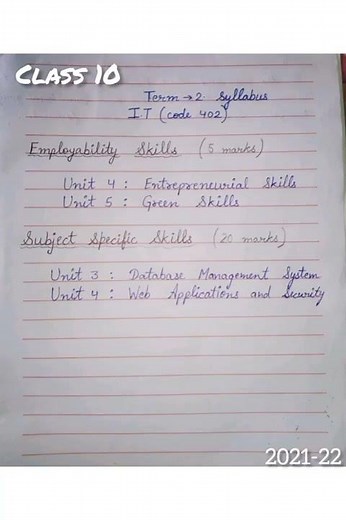 CLASS 10
Term → 2 Syllabus
I.T (code 402)
Employability Skills (5 marks)
Unit 4 : Entrepreneurial Skills
Unit 5 : Green Skills
Subject Specific Skills (20 marks)
Unit 3 : Database Management System
Unit 4 : Web Applications and Security
2021-22